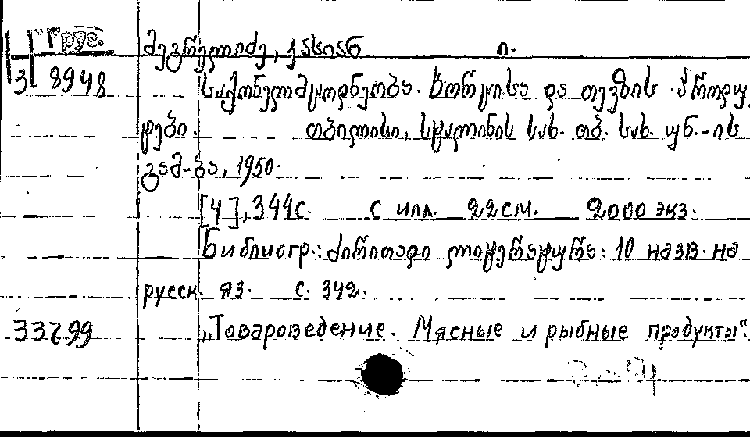 Груз.
მეგრელიძე, ქასიან п.
3 8948 საქონელმცოდნეობა. ხორცისა და თევზის პროდუ
ქტები. თბილისი, სტალინის სახ. თბ. სახ. უნ.-ის
გამ-ბა, 1950.
[4], 344 с. с илл. 22 см. 2000 экз.
Библиогр.: ძირითადი ლიტერატურა: 10 назв. на
русск. яз. с. 342.
33299 „Товароведение. Мясные и рыбные продукты".